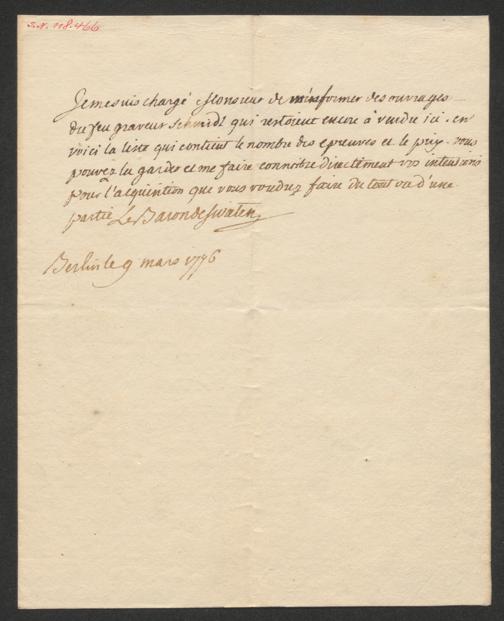 J.N. 118.466
Je me suis chargé Monsieur de m'informer des ouvrages
du feu graveur Schmidt qui restoient encore à vendre ici. en
voici la liste qui contient le nombre des epreuves et le prix. vous
pouvez la garder et me faire connoitre directement vos intentions
pour l'acquisition que vous voudrez faire du tout ou d'une
partie Le Baron de Swieten
Berlin le 9 mars 1776